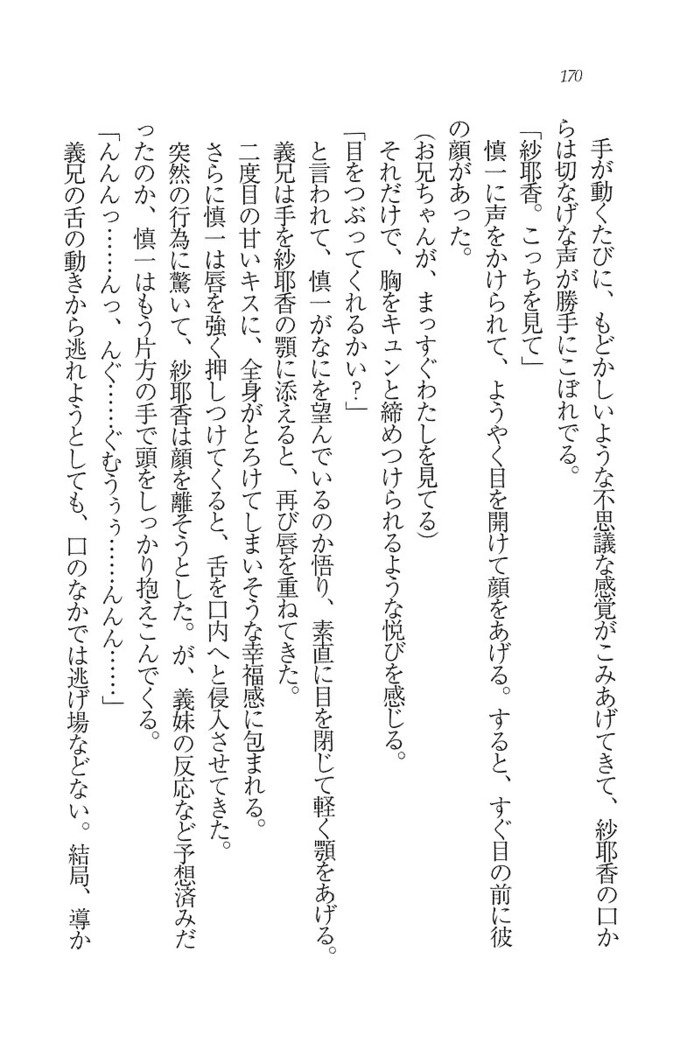 170
手が動くたびに、もどかしいような不思議な感覚がこみあげてきて、紗耶香の口か
らは切なげな声が勝手にこぼれでる。
「紗耶香。こっちを見て」
慎一に声をかけられて、ようやく目を開けて顔をあげる。すると、すぐ目の前に彼
の顔があった。
(お兄ちゃんが、まっすぐわたしを見てる)
それだけで、胸をキュンと締めつけられるような悦びを感じる。
「目をつぶってくれるかい？」
と言われて、慎一がなにを望んでいるのか悟り、素直に目を閉じて軽く顎をあげる。
義兄は手を紗耶香の顎に添えると、再び唇を重ねてきた。
二度目の甘いキスに、全身がとろけてしまいそうな幸福感に包まれる。
さらに慎一は唇を強く押しつけてくると、舌を口内へと侵入させてきた。
突然の行為に驚いて、紗耶香は顔を離そうとした。が、義妹の反応など予想済みだ
ったのか、慎一はもう片方の手で頭をしっかり抱えこんでくる。
「んんんっ……んっ、んぐ……ぐむうぅぅ……んんん……」
義兄の舌の動きから逃れようとしても、口のなかでは逃げ場などない。結局、導か